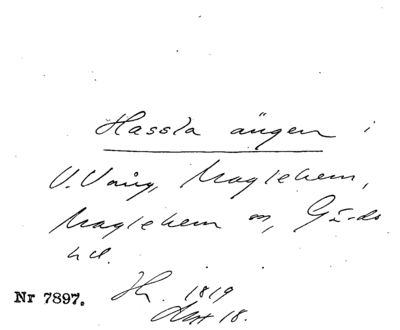 Hassla ängen i
V. Vång, Maglehem,
Maglehem sn, Gärds
hd.
Nr 7897. 1819
Akt 18.